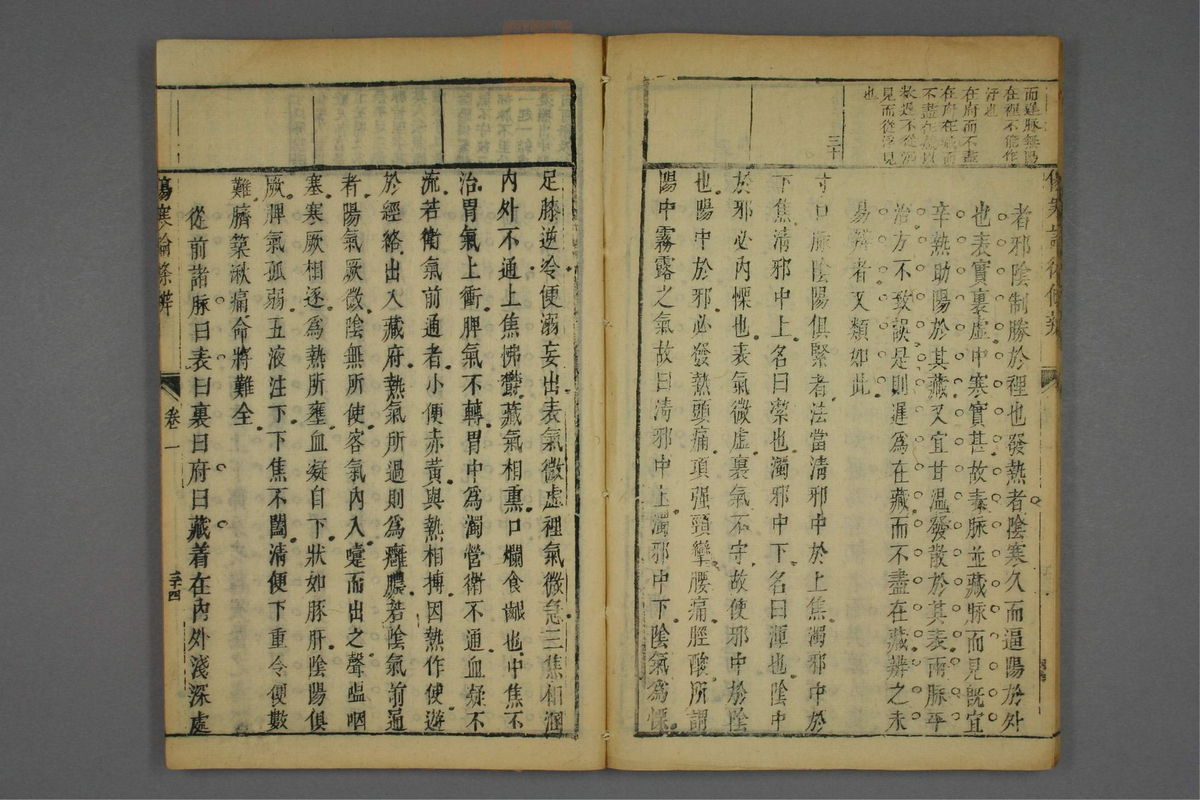 而遲脉無陽
在裡不能作
汗也
在府而不盡
在府在藏而
不盡在藏以
故遲不從沉
見而從浮見
也
三十
者邪陰制勝於裡也發熱者陰寒久而逼陽於外
也表實裏虛中寒實甚故秦脉並藏脉而見既宜
辛熱助陽於其藏又宜甘溫發散於其表兩脉平
治方不致誤是則遲為在藏而不盡在藏辨之未
易辨者又類如此
寸口脉陰陽俱緊者法當淸邪中於上焦濁邪中於
下焦淸邪中上名曰潔也濁邪中下名曰渾也陰中
於邪必內慄也表氣微虛裏氣不守故使邪中於陰
也陽中於邪必發熱頭痛項强頸攣腰痛脛酸所謂
陽中霧露之氣故曰淸邪中上濁邪中下陰氣為慄
足膝逆冷便溺妄出表氣微虛裡氣微急三焦相溷
內外不通上焦怫鬱藏氣相熏口爛食齗也中焦不
治胃氣上衝脾氣不轉胃中為濁營衛不通血凝不
流若衛氣前通者小便赤黃與熱相摶因熱作使遊
於經絡出入藏府熱氣所過則為癰膿若陰氣前通
者陽氣厥微陰無所使客氣內入嚏而出之聲嗢咽
塞寒厥相逐為熱所壅血凝自下狀如豚肝陰陽俱
厥脾氣孤弱五液注下下焦不闔淸便下重令便數
難臍築湫痛命將難全
從前諸脉曰表曰裏曰府曰藏着在內外淺深處
傷寒論條辨
卷一
三十四